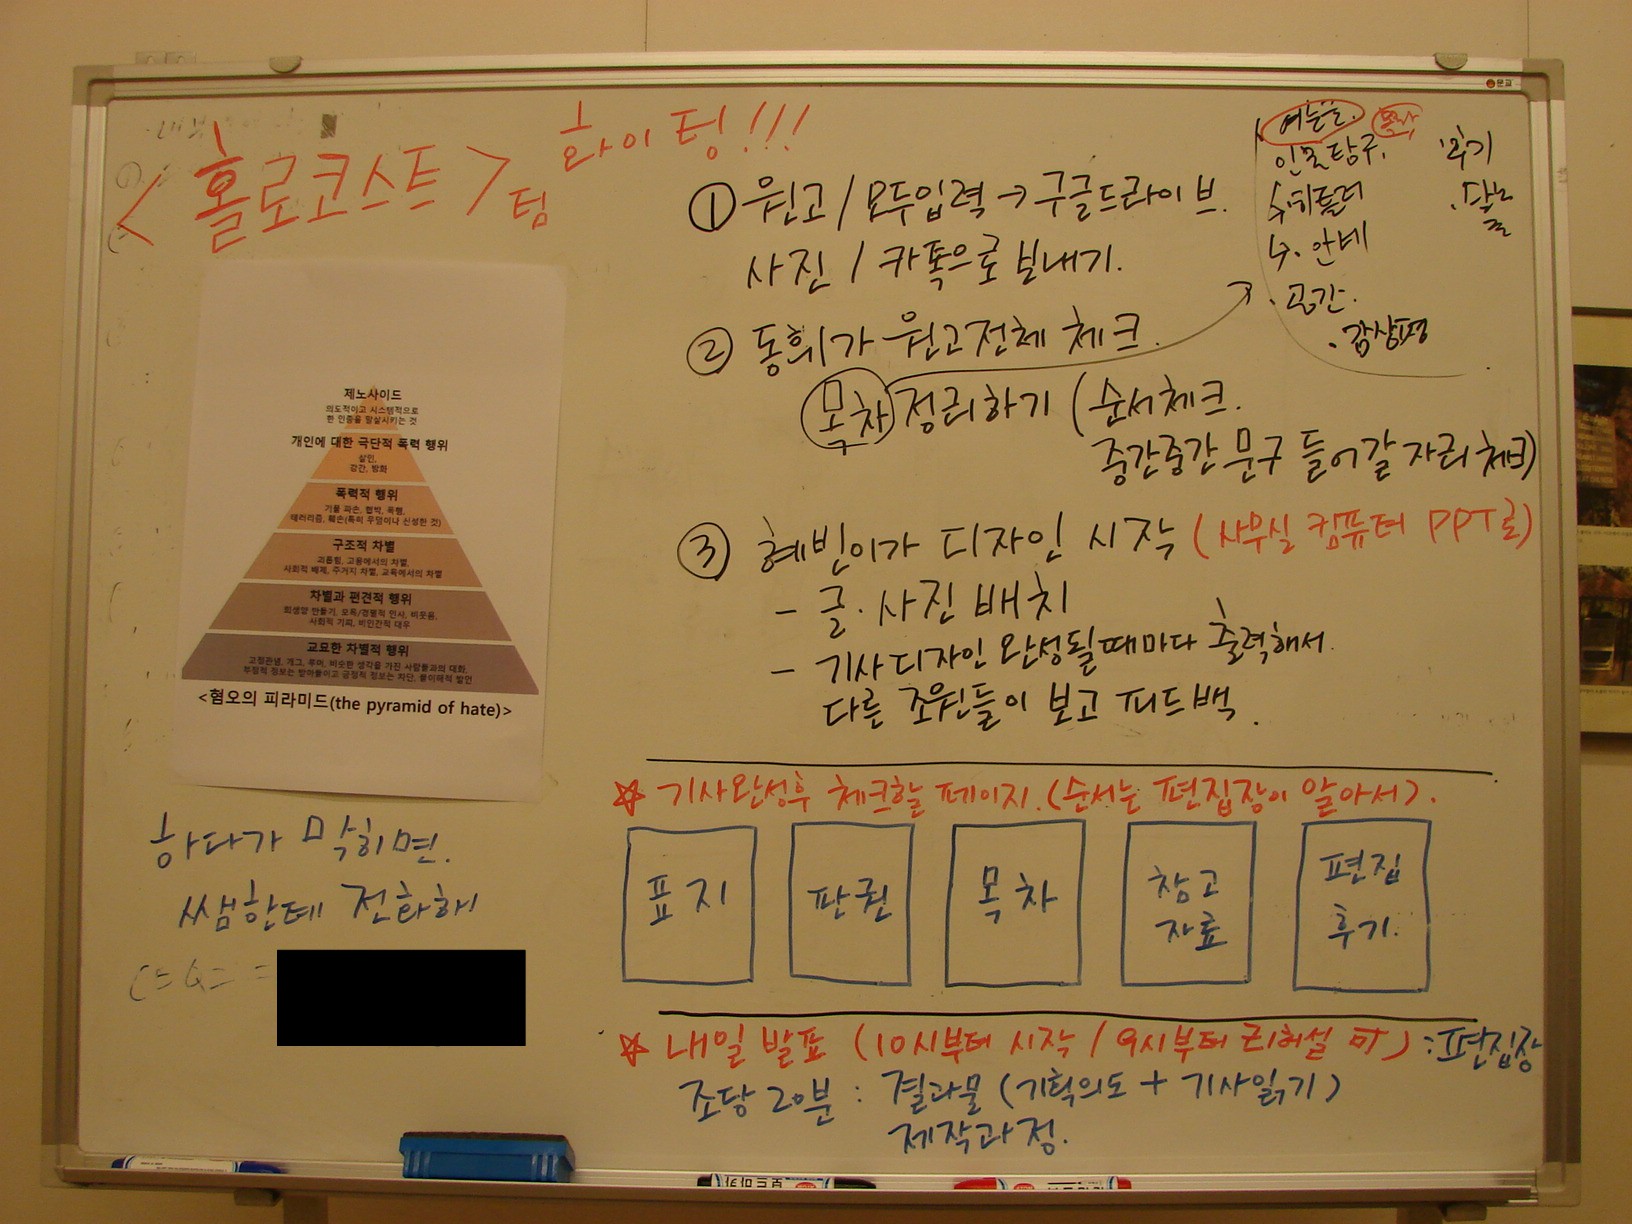 <홀로코스트>팀 화이팅!!!
① 원고 / 모두입력 → 구글드라이브.
사진 / 카톡으로 보내기.
② 동희가 원고전체 체크.
목차 정리하기 (순서체크.
중간중간 문구 들어갈 자리 체크)
③ 혜빈이가 디자인 시작 (사무실 컴퓨터 PPT로)
- 글·사진 배치
- 기사디자인 완성될때마다 출력해서.
다른 조원들이 보고 피드백.
여는글.
인물탐구.
히틀러
안네
· 공간.
· 감상평
·후기
· 닫는
문교
제노사이드
의도적이고 시스템적으로
한 인종을 말살시키는 것
개인에 대한 극단적 폭력 행위
살인,
강간, 방화
폭력적 행위
기물 파손, 협박, 폭행,
테러리즘, 훼손(특히 무덤이나 신성한 것)
구조적 차별
괴롭힘, 고용에서의 차별,
사회적 배제, 주거지 차별, 교육에서의 차별
차별과 편견적 행위
희생양 만들기, 모욕/경멸적 인사, 비웃음,
사회적 기피, 비인간적 대우
교묘한 차별적 행위
고정관념, 개그, 루머, 비슷한 생각을 가진 사람들과의 대화
부정적 정보는 받아들이고 긍정적 정보는 차단, 몰이해적 발언
<혐오의 피라미드(the pyramid of hate)>
하다가 막히면.
쌤한테 전화해
☆ 기사완성후 체크할 페이지.(순서는 편집장이 알아서).
표지
판권
목차
참고
자료
편집
후기.
☆ 내일 발표 (10시부터 시작 / 9시부터 리허설 可) : 편집장
조당 20분 : 결과물 (기획의도 + 기사읽기)
제작과정.
보드마카